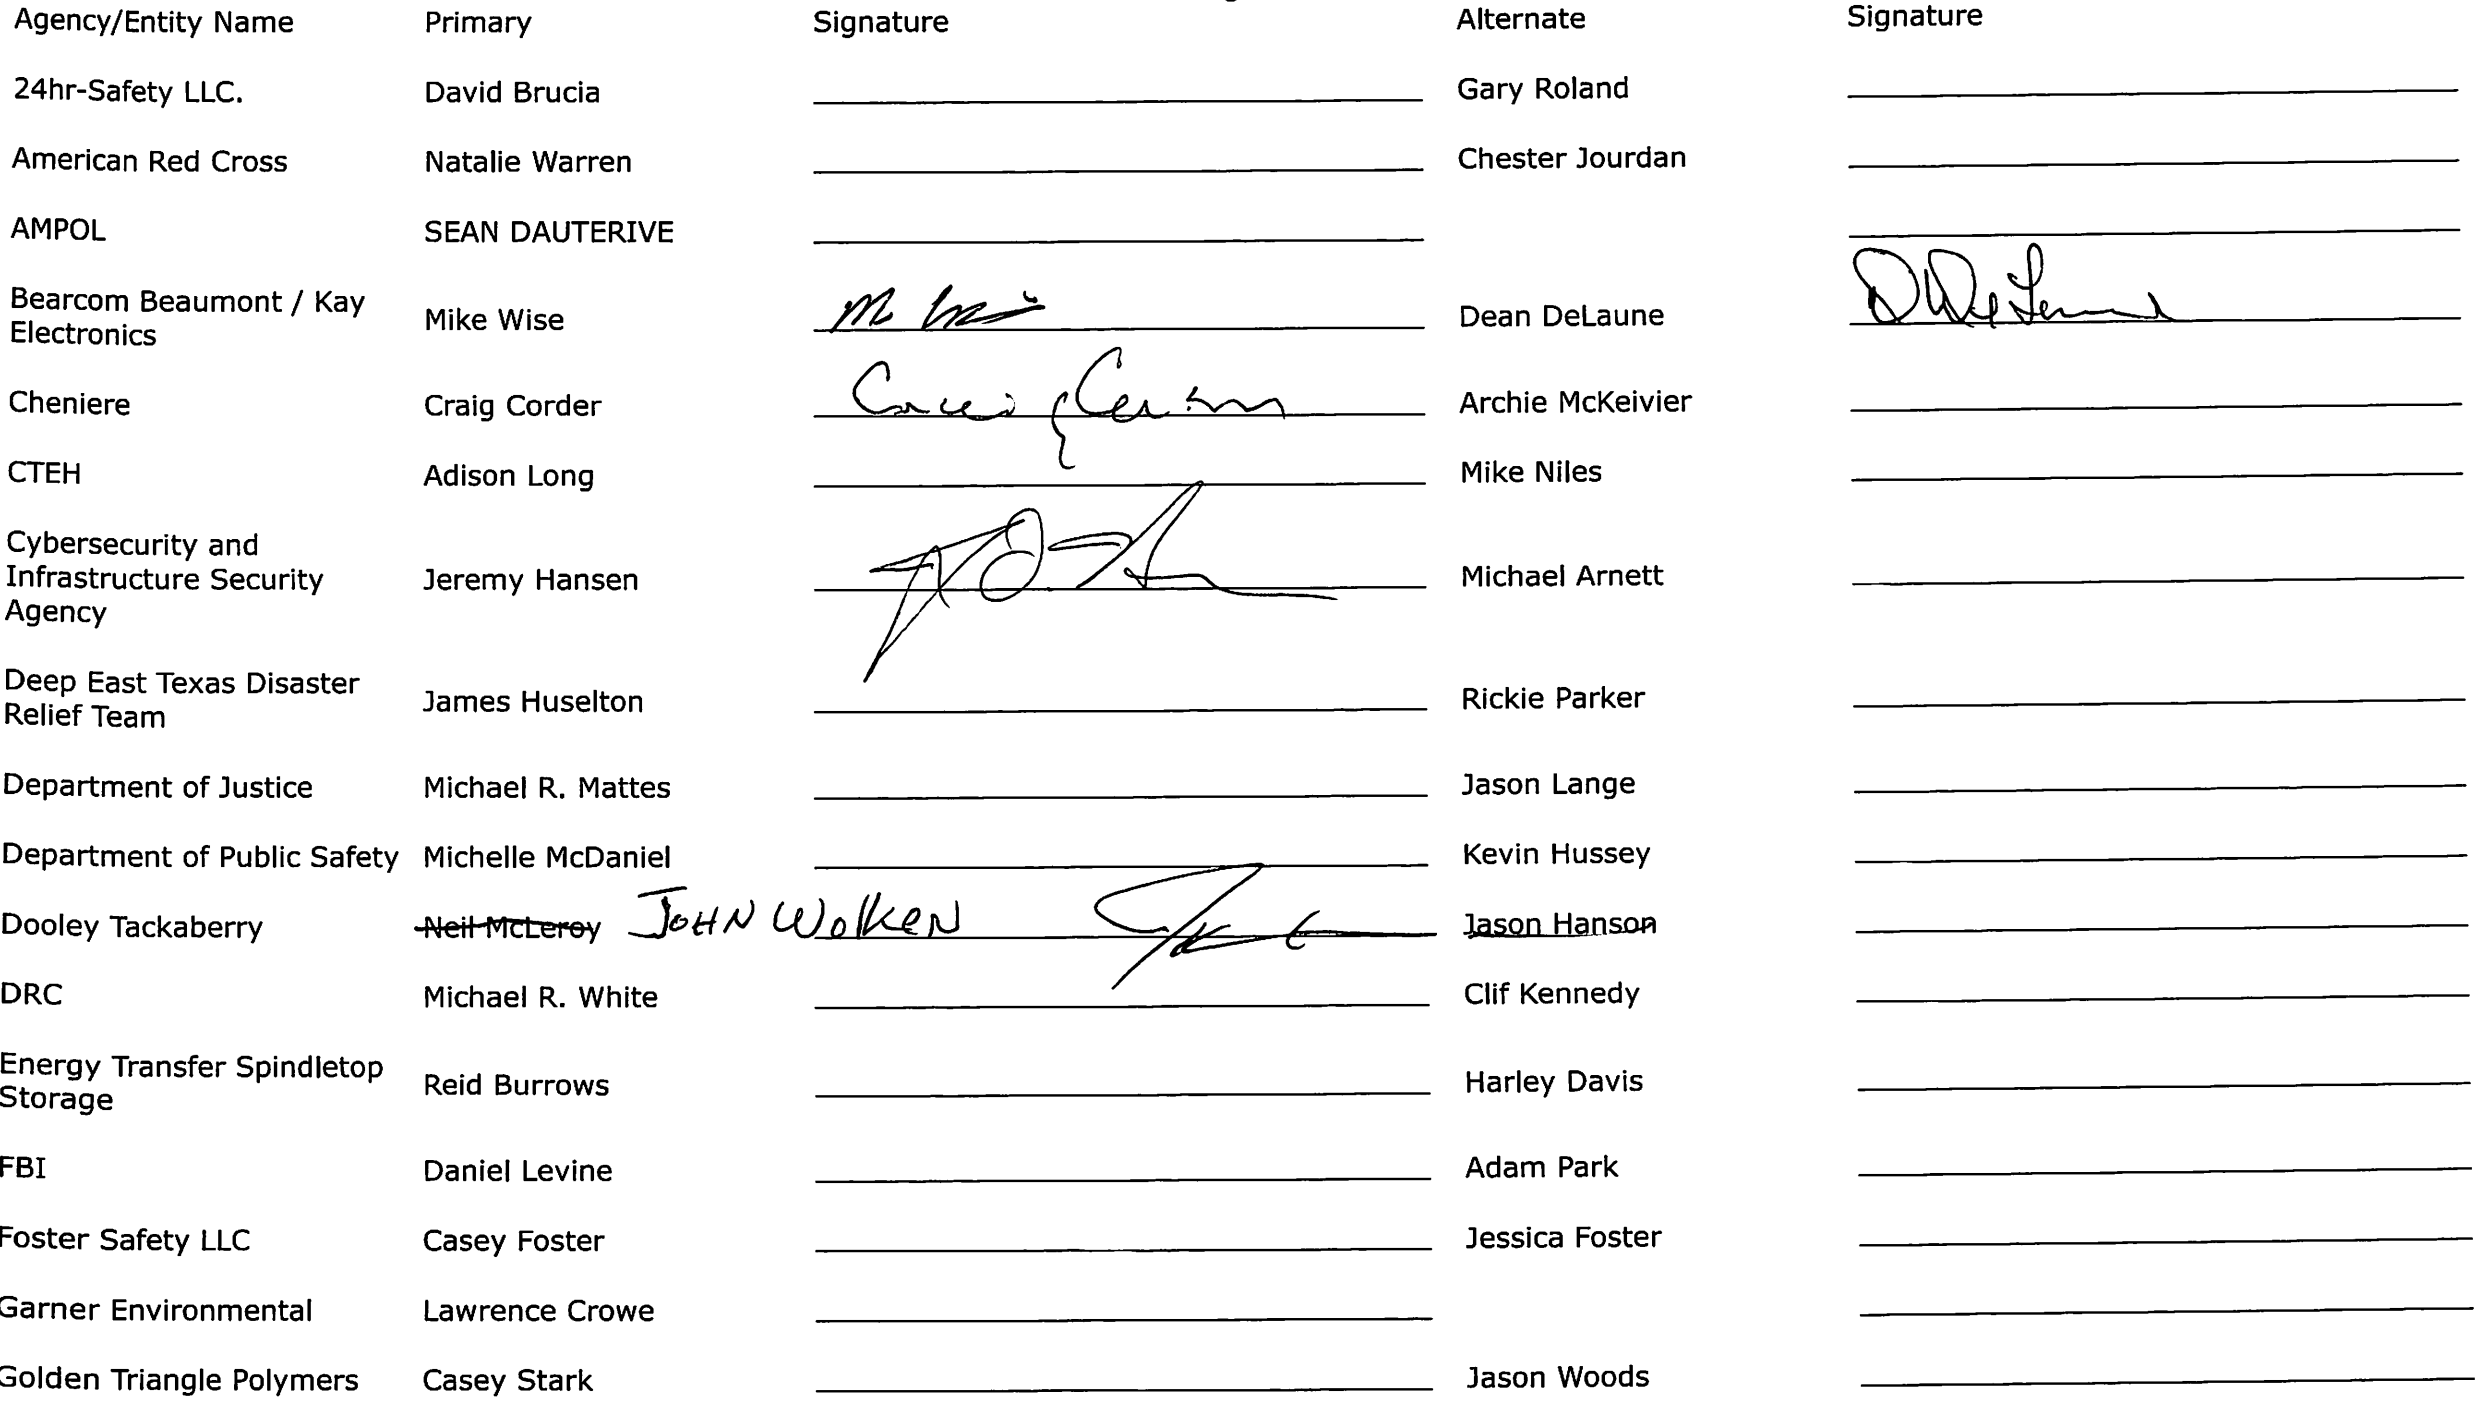 Agency/Entity Name Primary Signature Alternate Signature
24hr-Safety LLC. David Brucia Gary Roland
American Red Cross Natalie Warren Chester Jourdan
AMPOL SEAN DAUTERIVE
Bearcom Beaumont / Kay
Electronics Mike Wise Dean DeLaune
Cheniere Craig Corder Archie McKeivier
CTEH Adison Long Mike Niles
Cybersecurity and
Infrastructure Security Jeremy Hansen Michael Arnett
Agency
Deep East Texas Disaster
Relief Team James Huselton Rickie Parker
Department of Justice Michael R. Mattes Jason Lange
Department of Public Safety Michelle McDaniel Kevin Hussey
Dooley Tackaberry Neil McLeroy JOHN WOLKEN Jason Hanson
DRC Michael R. White Clif Kennedy
Energy Transfer Spindletop
Storage Reid Burrows Harley Davis
FBI Daniel Levine Adam Park
Foster Safety LLC Casey Foster Jessica Foster
Garner Environmental Lawrence Crowe
Golden Triangle Polymers Casey Stark Jason Woods